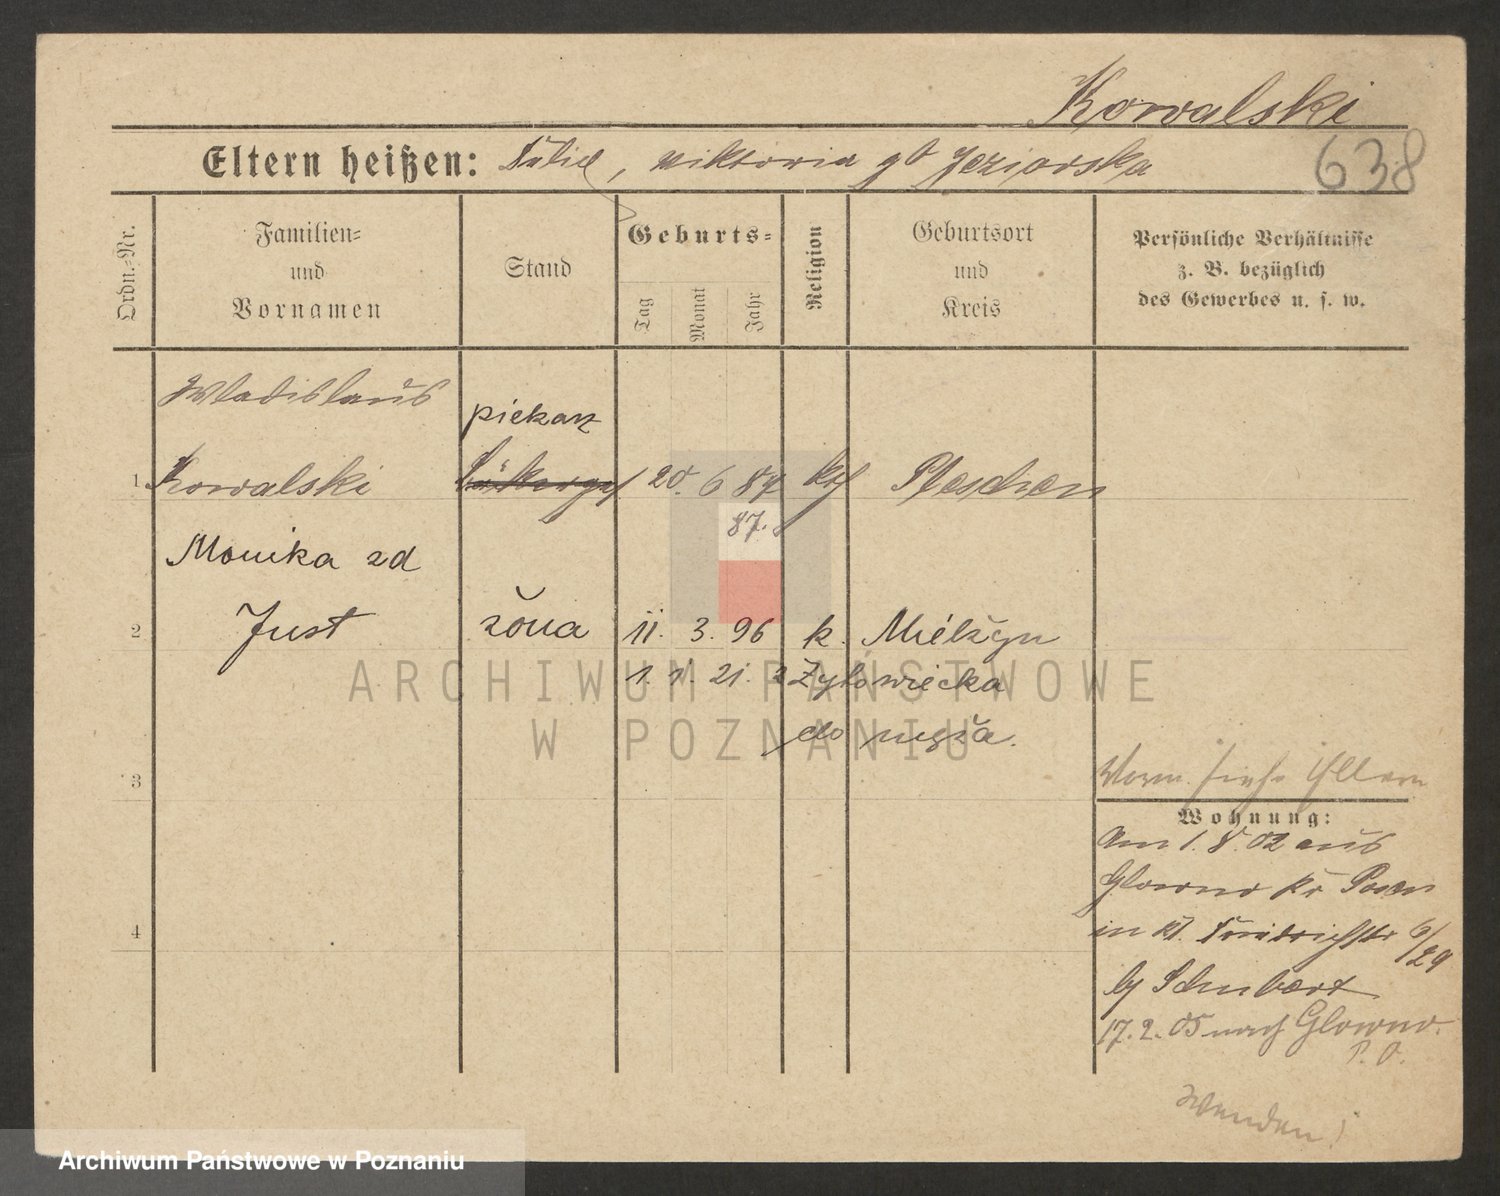 Kowalski
Eltern heißen: , Viktoria gb Jeziorska
638
Ordn.-Nr.
Familien-
und
Vornamen
Stand
Geburts-
Tag
Monat
Jahr
Religion
Geburtsort
und
Kreis
Persönliche Verhältnisse
z. B. bezüglich
des Gewerbes u. s. w.
Wladislaus
piekarz
1 Kowalski 20. 6 87 kth Pleschen
87.
Monika zd
2 Just żona 11. 3. 96 k. Mielżyn
1. 1. 21. z Żytowiecka
do męża.
3
Vorm. siehe Eltern
Wohnung:
Am 1. 8. 02 aus
Glowno Kr Posen
in Kl. 6/29
4
by Schubert
17. 2. 05 nach Glowno.
P. O.
Wenden!
ARCHIWUM PAŃSTWOWE
W POZNANIU
Archiwum Państwowe w Poznaniu